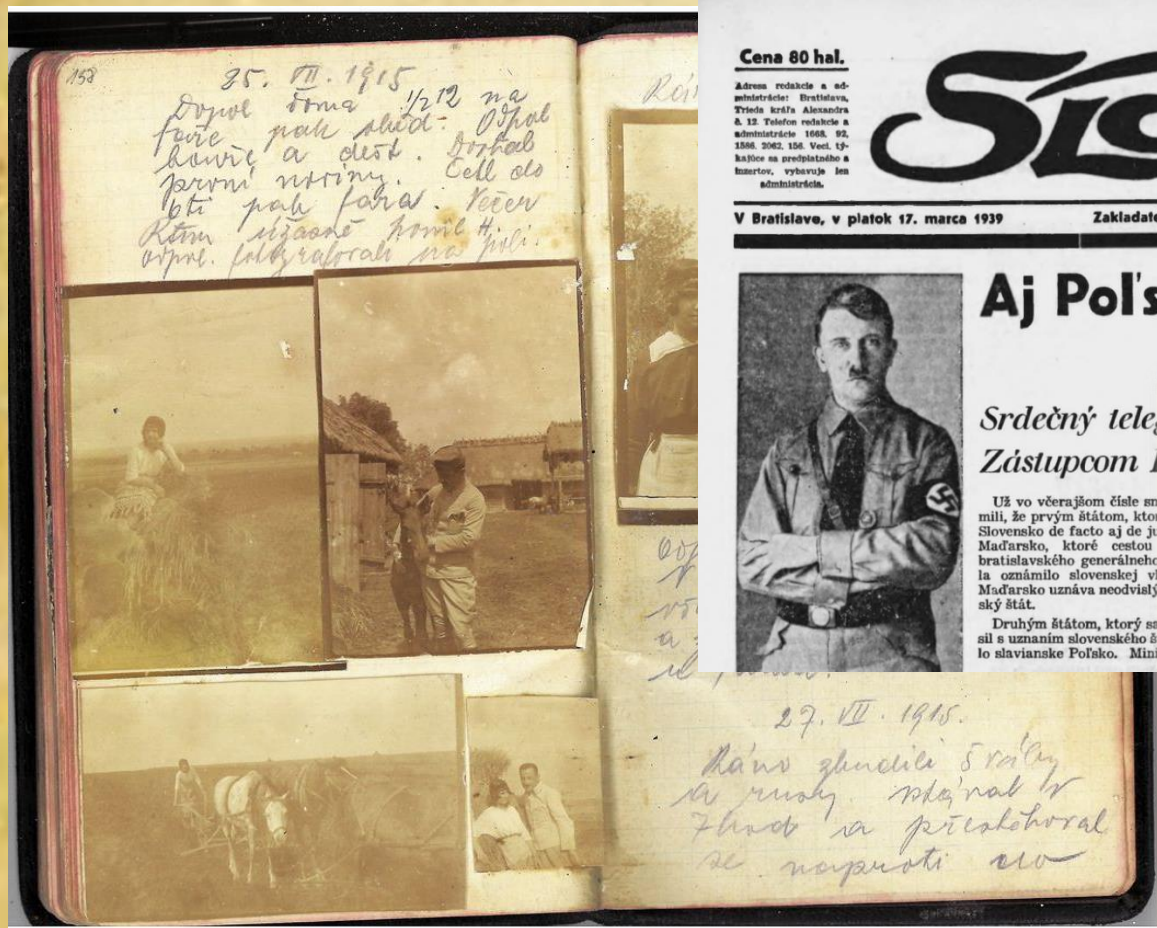 158
25. VII. 1915
Dopol doma 1/2 12 na
faře pak oběd. Odpol
bouře a dešt. Dostal
první noviny. Četl do
6ti pak fara. Večer
úžasně honil H.
odpol. fotografovali na poli.
Rán
27. VII. 1915.
Ráno zbudili Šváby
a rusy. v
7 hod a přestěhoval
se naproti do
Cena 80 hal.
Adresa redakcie a ad-
ministrácie: Bratislava,
Trieda kráľa Alexandra
č. 12. Telefon redakcie a
administrácie 1668, 92,
1586, 2062, 156. Veci, tý-
kajúce sa predplatného a
inzertov, vybavuje len
administrácia.
Slo
V Bratislave, v piatok 17. marca 1939 Zakladate
Aj Poľs
Srdečný teleg
Zástupcom
Už vo včerajšom čísle sm
mili, že prvým štátom, ktor
Slovensko de facto aj de ju
Maďarsko, ktoré cestou
bratislavského generálneho
la oznámilo slovenskej vl
Maďarsko uznáva neodvislý
ský štát.
Druhým štátom, ktorý sa
sil s uznaním slovenského š
lo slavianske Poľsko. Mini